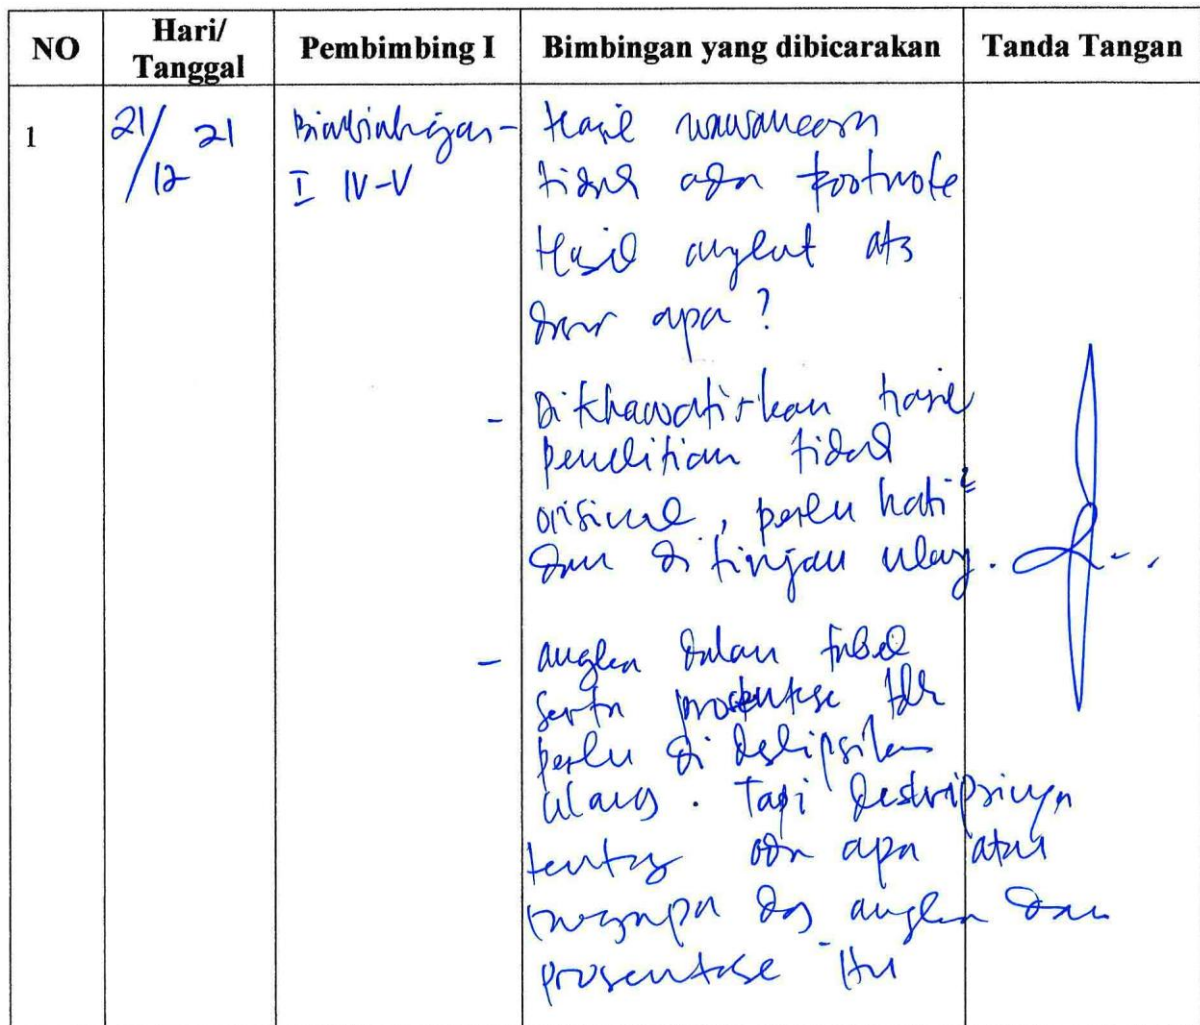 NO Hari/ Tanggal Pembimbing I Bimbingan yang dibicarakan Tanda Tangan
1 21/12 21
I IV-V
- Hasil wawancara
tidak ada footnote
Hasil angket ats
dasar apa?
- Dikhawatirkan hasil
penelitian tidak
orisinal, perlu hati²
dan ditinjau ulang.
- angka dalam tabel
serta prosentase tdk
perlu dideskripsikan
ulang. Tapi deskripsinya
tentang ada apa atau
mengapa dg angka dan
prosentase itu